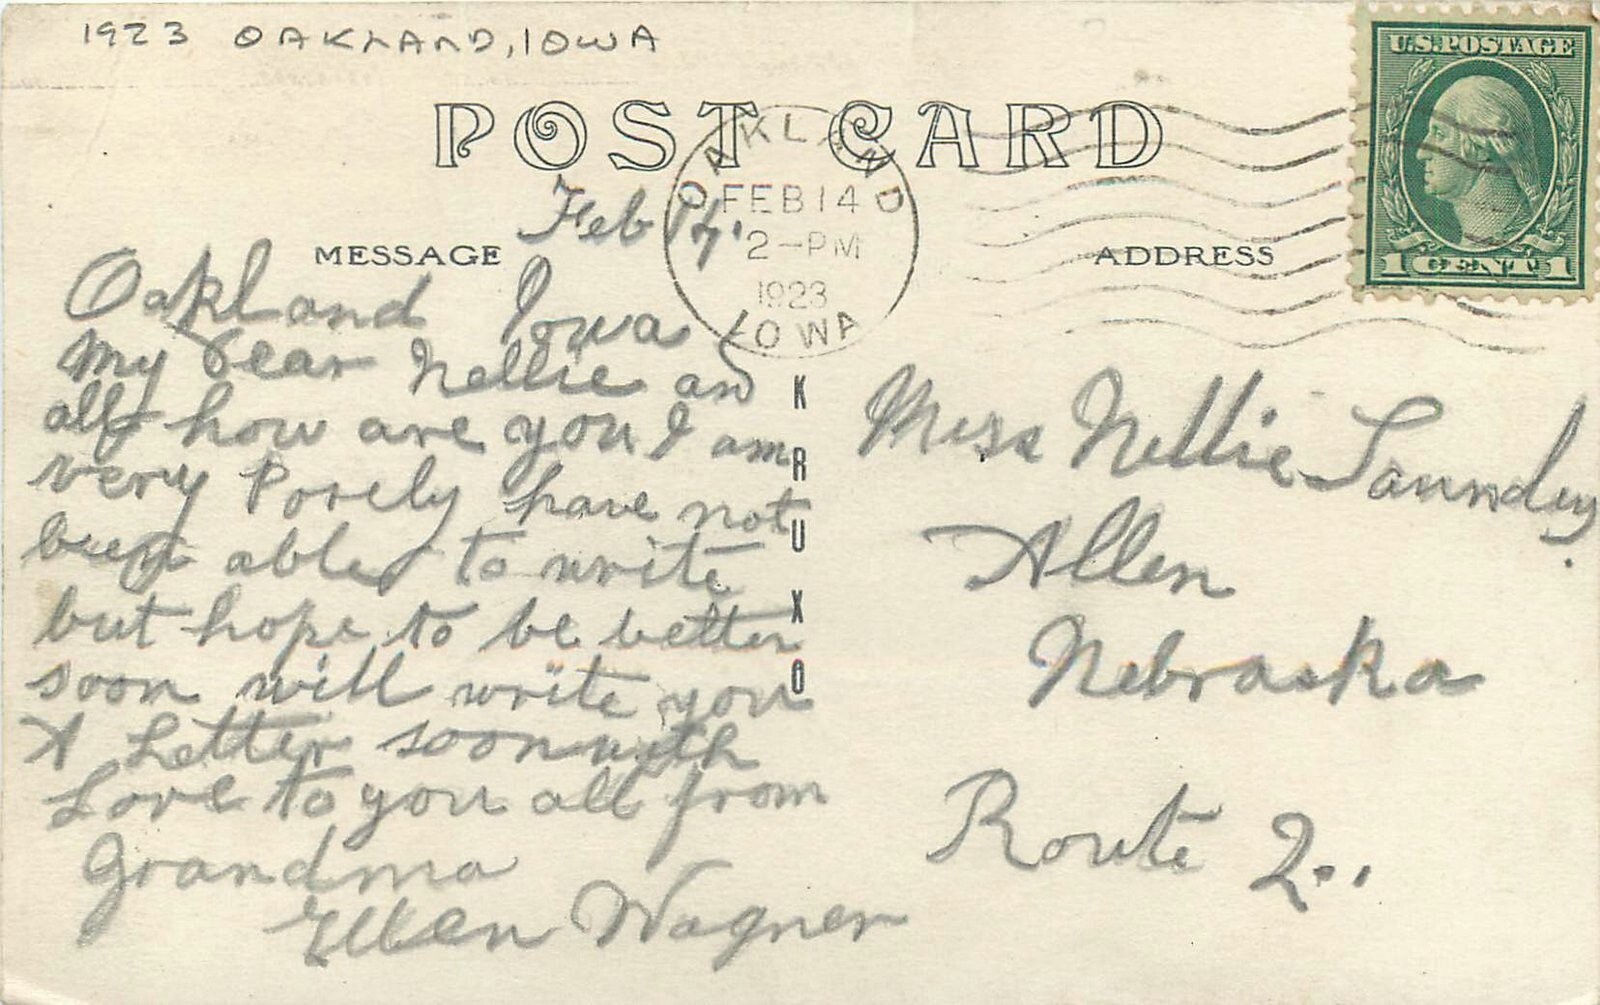 1923 OAKLAND, IOWA
U.S. POSTAGE
1 CENT 1
POST CARD
OAKLAND
FEB 14
2-PM
1923
IOWA
MESSAGE
ADDRESS
Feb 14.
Oakland Iowa
My Dear Nellie and
all how are you I am
very Porely have not
been able to write
but hope to be better
soon will write you
A Letter soon with
Love to you all from
Grandma
Ellen Wagner
KRUXO
Miss Nellie Saunders
Allen
Nebraska
Route 2..